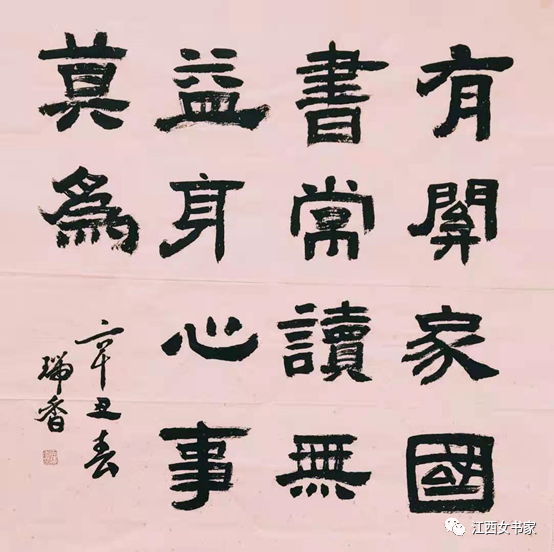 有關家國
書常讀無
益身心事
莫為
辛丑春
瑞香
江西女书家